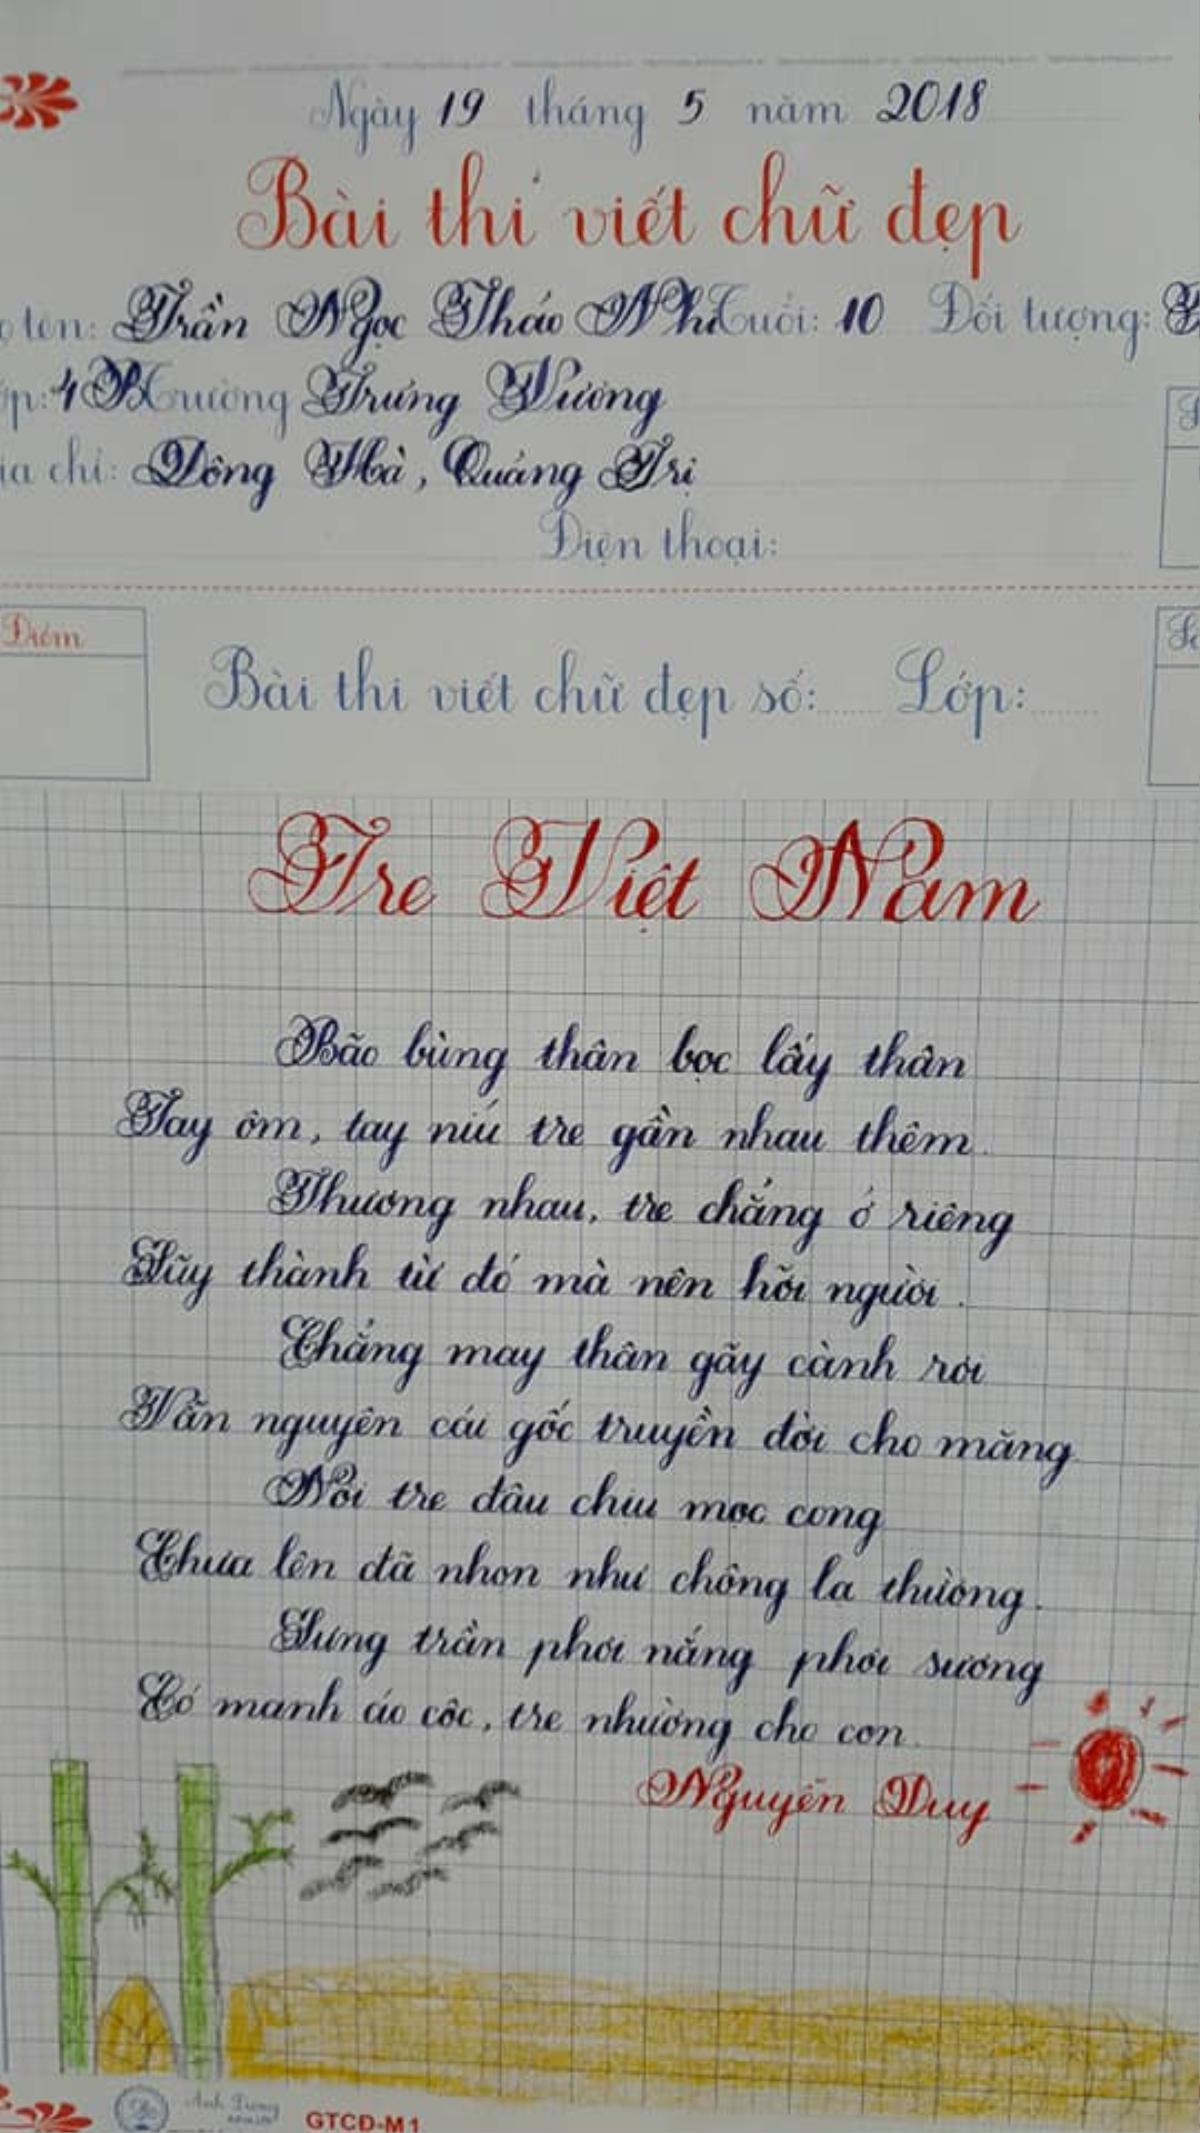 Ngày 19 tháng 5 năm 2018
Bài thi viết chữ đẹp
ọ tên: Trần Ngọc Thảo Nhi Tuổi: 10 Đối tượng:
ớp: 4 Trường Trưng Vương
ịa chỉ: Đông Hà, Quảng Trị
Điện thoại:
Điểm
Bài thi viết chữ đẹp số: Lớp:
Tre Việt Nam
Bão bùng thân bọc lấy thân
Tay ôm, tay níu tre gần nhau thêm.
Thương nhau, tre chẳng ở riêng
Lũy thành từ đó mà nên hỡi người.
Chẳng may thân gãy cành rơi
Vẫn nguyên cái gốc truyền đời cho măng
Nòi tre đâu chịu mọc cong
Chưa lên đã nhọn như chông lạ thường.
Lưng trần phơi nắng phơi sương
Có manh áo cộc, tre nhường cho con.
Nguyễn Duy
GTCD-M1